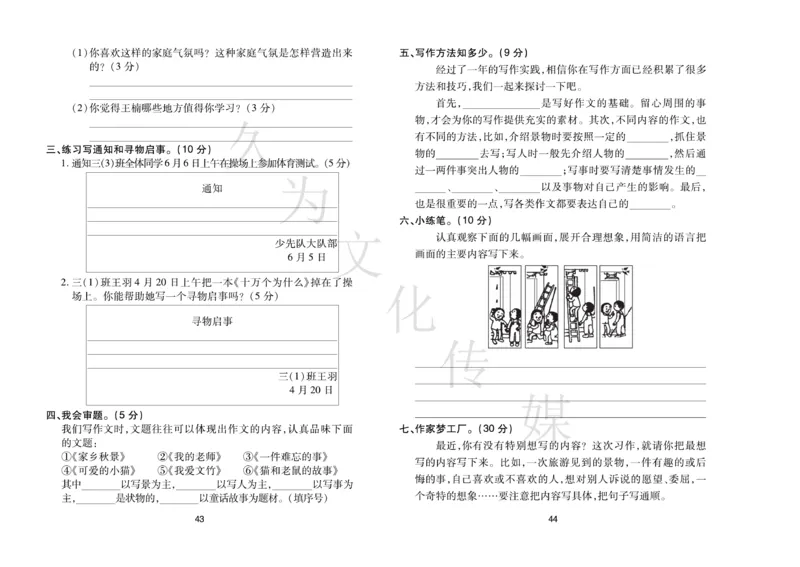 (1)你喜欢这样的家庭气氛吗？这种家庭气氛是怎样营造出来
的？(3分)
(2)你觉得王楠哪些地方值得你学习？(3分)
三、练习写通知和寻物启事。(10分)
1.通知三(3)班全体同学6月6日上午在操场上参加体育测试。(5分)
通知
少先队大队部
6月5日
2.三(1)班王羽4月20日上午把一本《十万个为什么》掉在了操
场上。你能帮助她写一个寻物启事吗？(5分)
寻物启事
三(1)班王羽
4月20日
四、我会审题。(5分)
我们写作文时,文题往往可以体现出作文的内容,认真品味下面
的文题：
①《家乡秋景》 ②《我的老师》 ③《一件难忘的事》
④《可爱的小猫》 ⑤《我爱文竹》 ⑥《猫和老鼠的故事》
其中______以写景为主,______以写人为主,______以写事为
主,______是状物的,______以童话故事为题材。(填序号)
43
五、写作方法知多少。(9分)
经过了一年的写作实践,相信你在写作方面已经积累了很多
方法和技巧,我们一起来探讨一下吧。
首先,____________是写好作文的基础。留心周围的事
物,才会为你的写作提供充实的素材。其次,不同内容的作文,也
有不同的方法,比如,介绍景物时要按照一定的______,抓住景
物的______去写;写人时一般先介绍人物的______,然后通
过一两件事突出人物的______;写事时要写清楚事情发生的__
____、______、______以及事物对自己产生的影响。最后,
也是很重要的一点,写各类作文都要表达自己的______。
六、小练笔。(10分)
认真观察下面的几幅画面,展开合理想象,用简洁的语言把
画面的主要内容写下来。
七、作家梦工厂。(30分)
最近,你有没有特别想写的内容？这次习作,就请你把最想
写的内容写下来。比如,一次旅游见到的景物,一件有趣的或后
悔的事,自己喜欢或不喜欢的人,想对别人诉说的愿望、委屈,一
个奇特的想象……要注意把内容写具体,把句子写通顺。
44
久为文化传媒